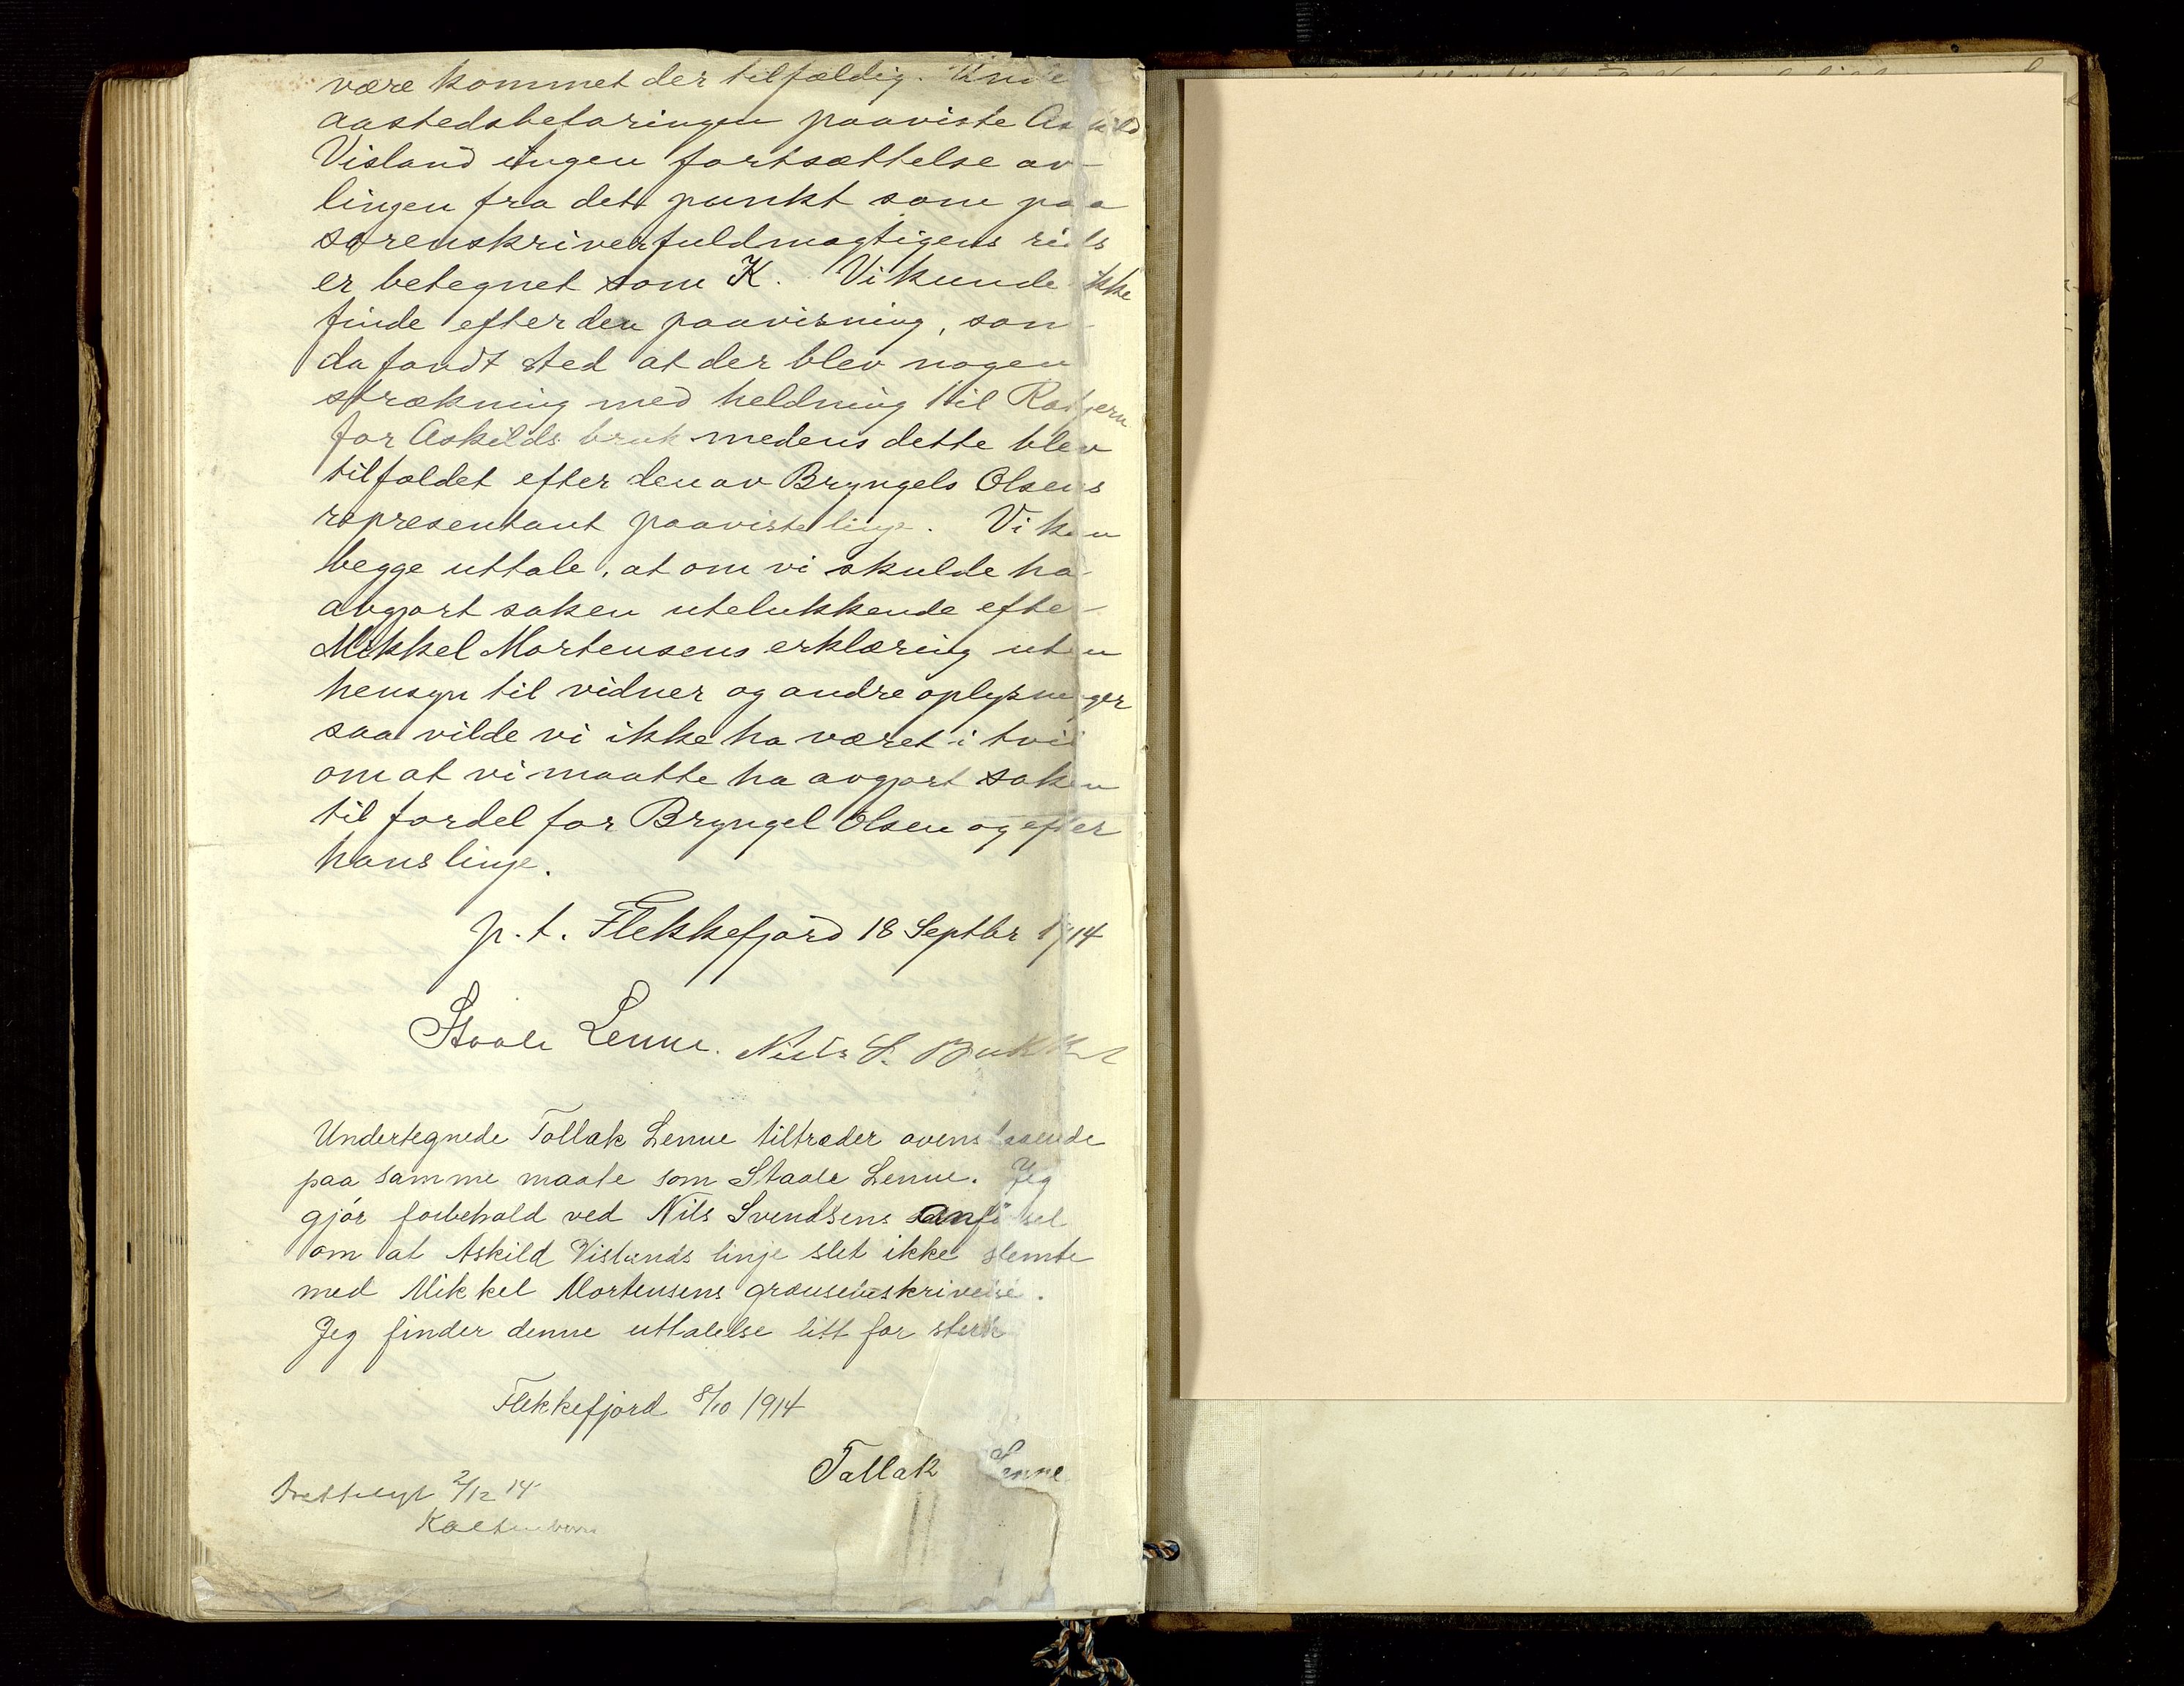 være kommet der tilfældig. Unde
aastedsbefaringen paaviste Askild
Visland ingen fortsættelse av
linjen fra det punkt som paa
sorenskriverfuldmægtigens rids
er betegnet som K. Vi kunde ikke
finde efter den paavisning, som
da fandt sted at der blev nogen
strækning med heldning til
for Askilds bruk medens dette blev
tilfældet efter den av Bryngels Olsens
representant paaviste linje. Vi kan
begge uttale, at om vi skulde ha
avgjort saken utelukkende efter
Mikkel Mortensens erklæring uten
hensyn til vidner og andre oplysninger
saa vilde vi ikke ha været i tvil
om at vi maatte ha avgjort saken
til fordel for Bryngel Olsen og efter
hans linje.
p. t. Flekkefjord 18 Septbr 1914
Staale Lenne. Nils S.
Undertegnede Tollak Lenne tiltræder ovenstaaende
paa samme maate som Staale Lenne. Jeg
gjør forbehold ved Nils Svendsens anførsel
om at Askild Vislands linje slet ikke stemte
med Mikkel Mortensens grænsebeskrivelse.
Jeg finder denne uttalelse litt for sterk
Flekkefjord 8/10 1914
Tallak Lenne
Fremlagt 2/12 14